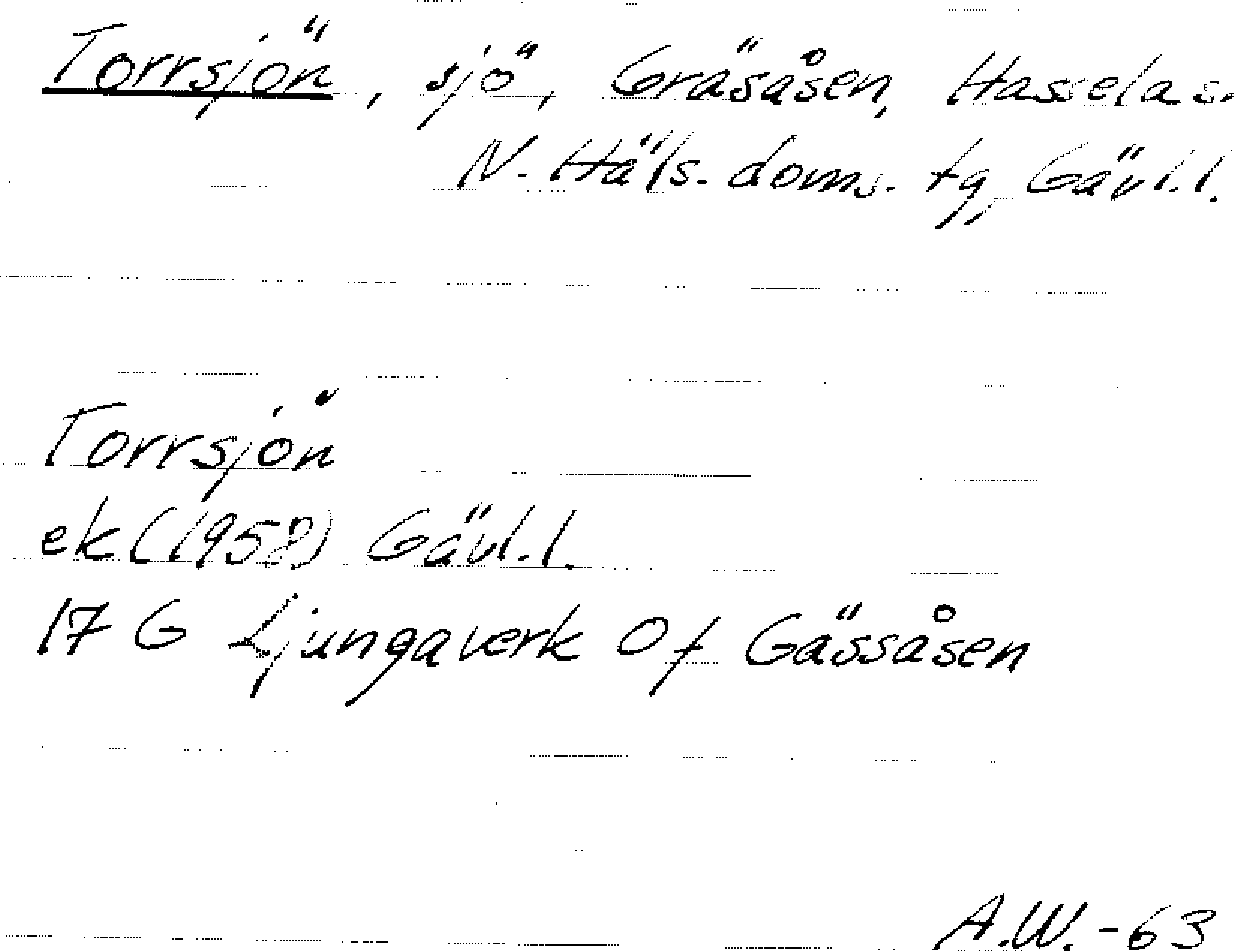 Torrsjön, sjö, Gräsåsen, Hassela s.
N. Häls. doms. tg, Gävl.l.
Torrsjön
ek (1958) Gävl.l.
17 G Ljungaverk Of Gässåsen
A.W.-63